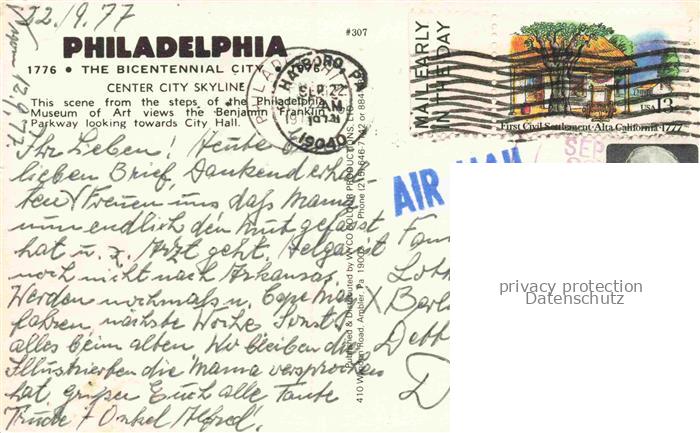 22.9.77
#307
PHILADELPHIA
1776 • THE BICENTENNIAL CITY • 1976
CENTER CITY SKYLINE
This scene from the steps of the Philadelphia
Museum of Art views the Benjamin Franklin
Parkway looking towards City Hall.
Ihr Lieben! Heute
lieben Brief, Dankend erhal
ten. Freuen uns daß Mama
nun endlich den Mut gefasst
hat u. z. Arzt geht. Helga ist
noch nicht nach Arkansas.
Werden nochmals n. Cape May
fahren, nächste Woche. Sonst
alles beim alten. Wir bleiben die
Illustrierten die Mama versprochen
hat, grüßen Euch alle Tante
Trude + Onkel Alfred!
Published & Distributed by WYCO COLOUR PRODUCTIONS,
410 Road, Ambler, Pa 19002 Phone (215) 646-7
MAIL EARLY
IN THE DAY
First Civil Settlement • Alta California • 1777
USA 13c
HATBORO, PA
SEP 22
AM
1977
19040
PHILADELPHIA
SEP
AIR MAIL
Fam
privacy protection
Datenschutz
D